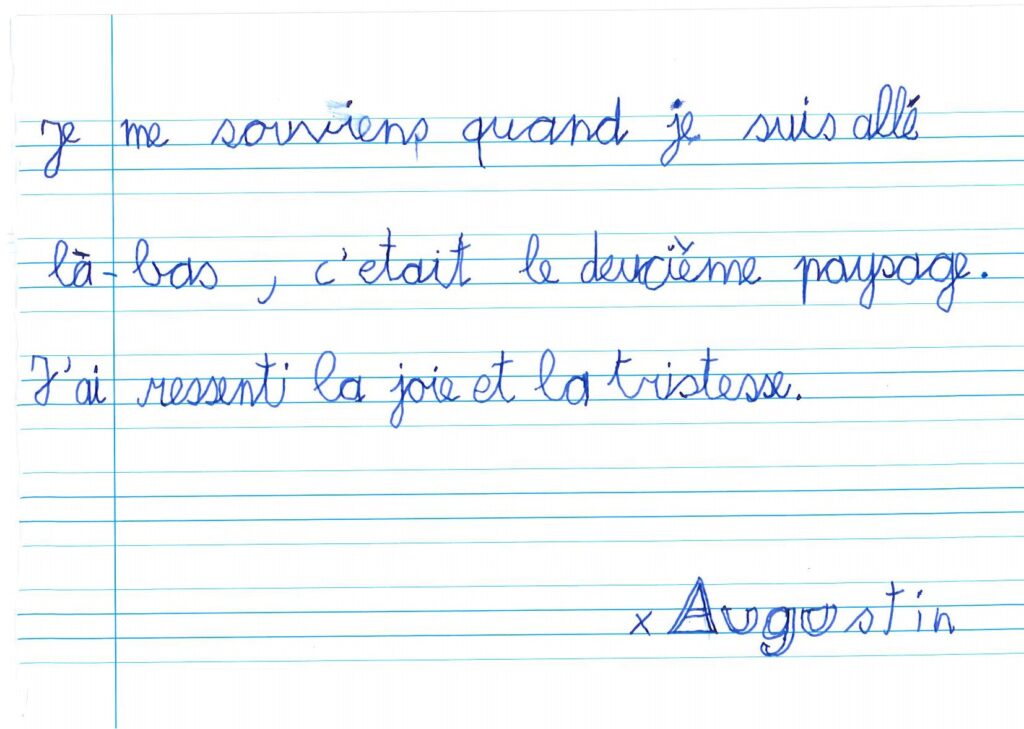 je me souviens quand je suis allé
là-bas, c'etait le deuxième paysage.
J'ai ressenti la joie et la tristesse.
x Augustin